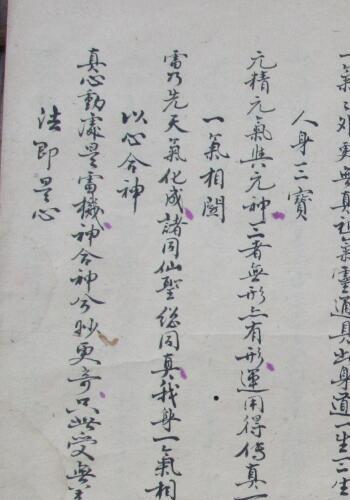 一氣之外更無真祖氣靈通具出身道一生二生
人身三寶
元精元氣與元神三者無形亦有形運用得傳真一
一氣相關
雷乃先天氣化成諸司仙聖總同真我身一氣相
以心合神
真心動處是雷機神合神兮妙更奇只此受與
法即是心